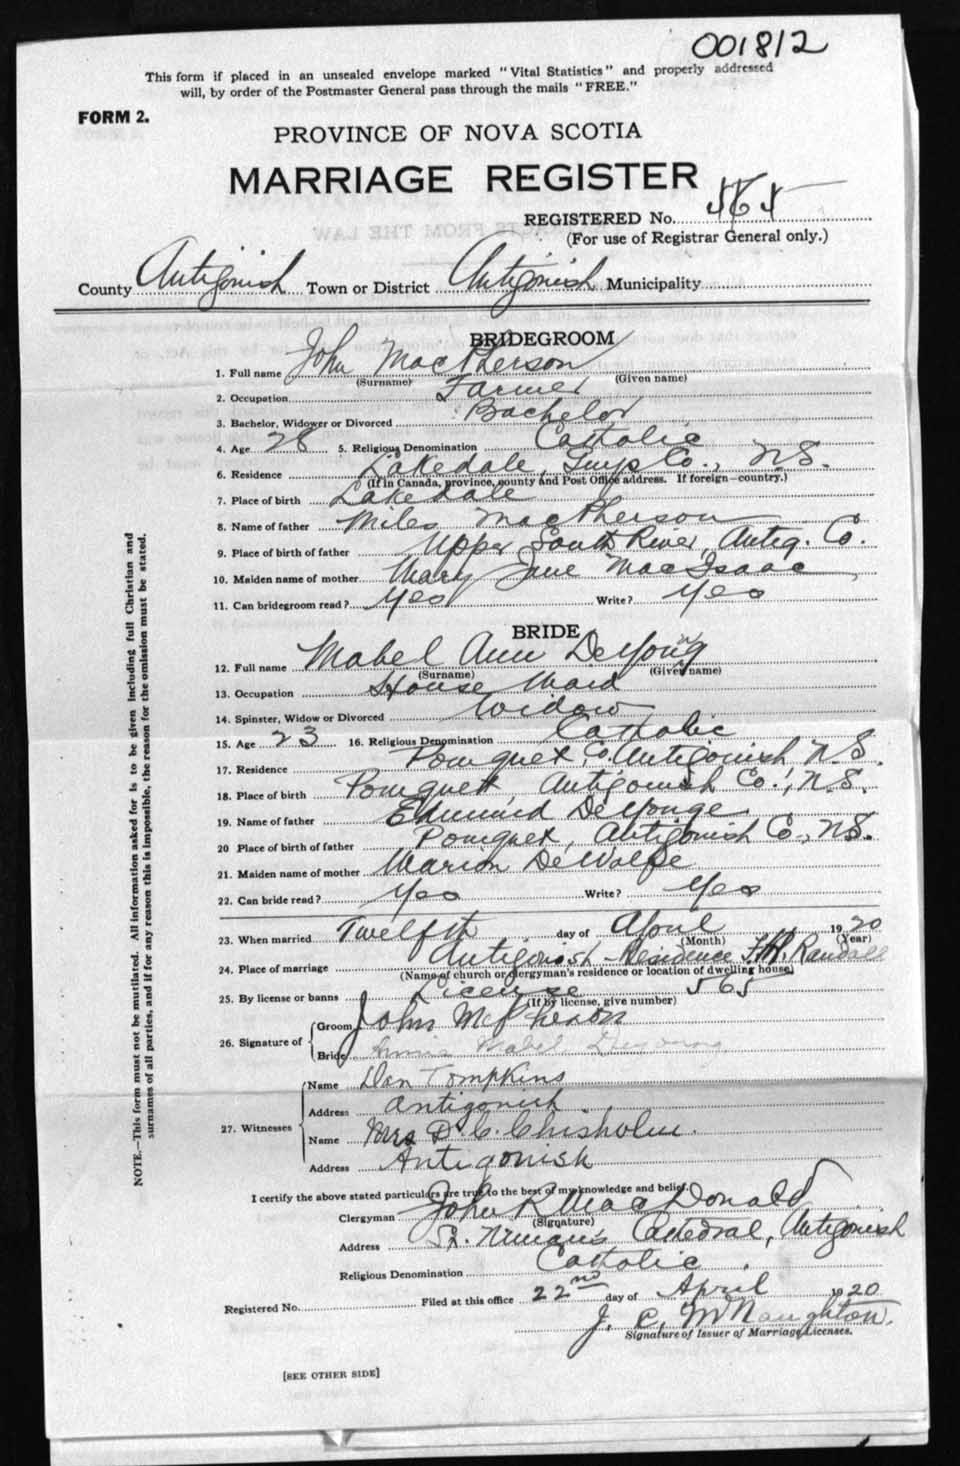 001812
This form if placed in an unsealed envelope marked "Vital Statistics" and properly addressed
will, by order of the Postmaster General pass through the mails "FREE."
FORM 2.
PROVINCE OF NOVA SCOTIA
MARRIAGE REGISTER
REGISTERED No. 565
(For use of Registrar General only.)
County Antigonish Town or District Antigonish Municipality
BRIDEGROOM
1. Full name John MacPherson
(Surname) (Given name)
2. Occupation Farmer
3. Bachelor, Widower or Divorced Bachelor
4. Age 28 5. Religious Denomination Catholic
6. Residence Lakedale, Guys Co., N.S.
(If in Canada, province, county and Post Office address. If foreign—country.)
7. Place of birth Lakedale
8. Name of father Miles MacPherson
9. Place of birth of father Upper South River, Antig. Co.
10. Maiden name of mother Mary Jane MacIsaac
11. Can bridegroom read? Yes Write? Yes
BRIDE
12. Full name Mabel Ann DeYoung
(Surname) (Given name)
13. Occupation House Maid
14. Spinster, Widow or Divorced Widow
15. Age 23 16. Religious Denomination Catholic
17. Residence Pomquet, Co. Antigonish N.S.
18. Place of birth Pomquet, Antigonish Co., N.S.
19. Name of father Edmund DeYonge
20 Place of birth of father Pomquet, Antigonish Co., N.S.
21. Maiden name of mother Marion DeWolfe
22. Can bride read? Yes Write? Yes
23. When married Twelfth day of April 1920
(Month) (Year)
24. Place of marriage Antigonish - Residence F.H. Randall
(Name of church or clergyman's residence or location of dwelling house)
25. By license or banns License 565
(If by license, give number)
26. Signature of
Groom John McPherson
Bride Annie Mabel Deyoung
27. Witnesses
Name Dan Tompkins
Address Antigonish
Name Mrs D. C. Chisholm.
Address Antigonish
I certify the above stated particulars are true to the best of my knowledge and belief.
Clergyman John R MacDonald
(Signature)
Address St. Ninian's Cathedral, Antigonish
Religious Denomination Catholic.
Registered No. Filed at this office 22nd day of April 1920
J. C. McNaughton.
Signature of Issuer of Marriage Licenses.
[SEE OTHER SIDE]
NOTE.—This form must not be mutilated. All information asked for is to be given including full Christian and
surnames of all parties, and if for any reason this is impossible, the reason for the omission must be stated.